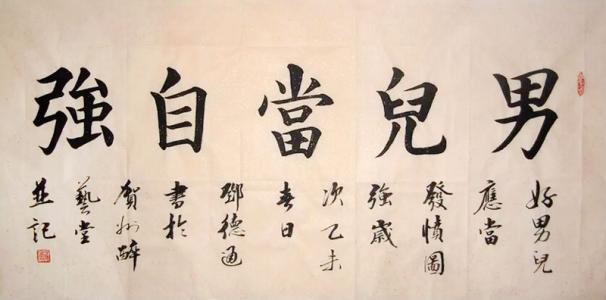 男兒當自強
好男兒
應當
發憤圖
強歲
次乙未
春日
鄧德通
書於
賀州醉
藝堂
並記